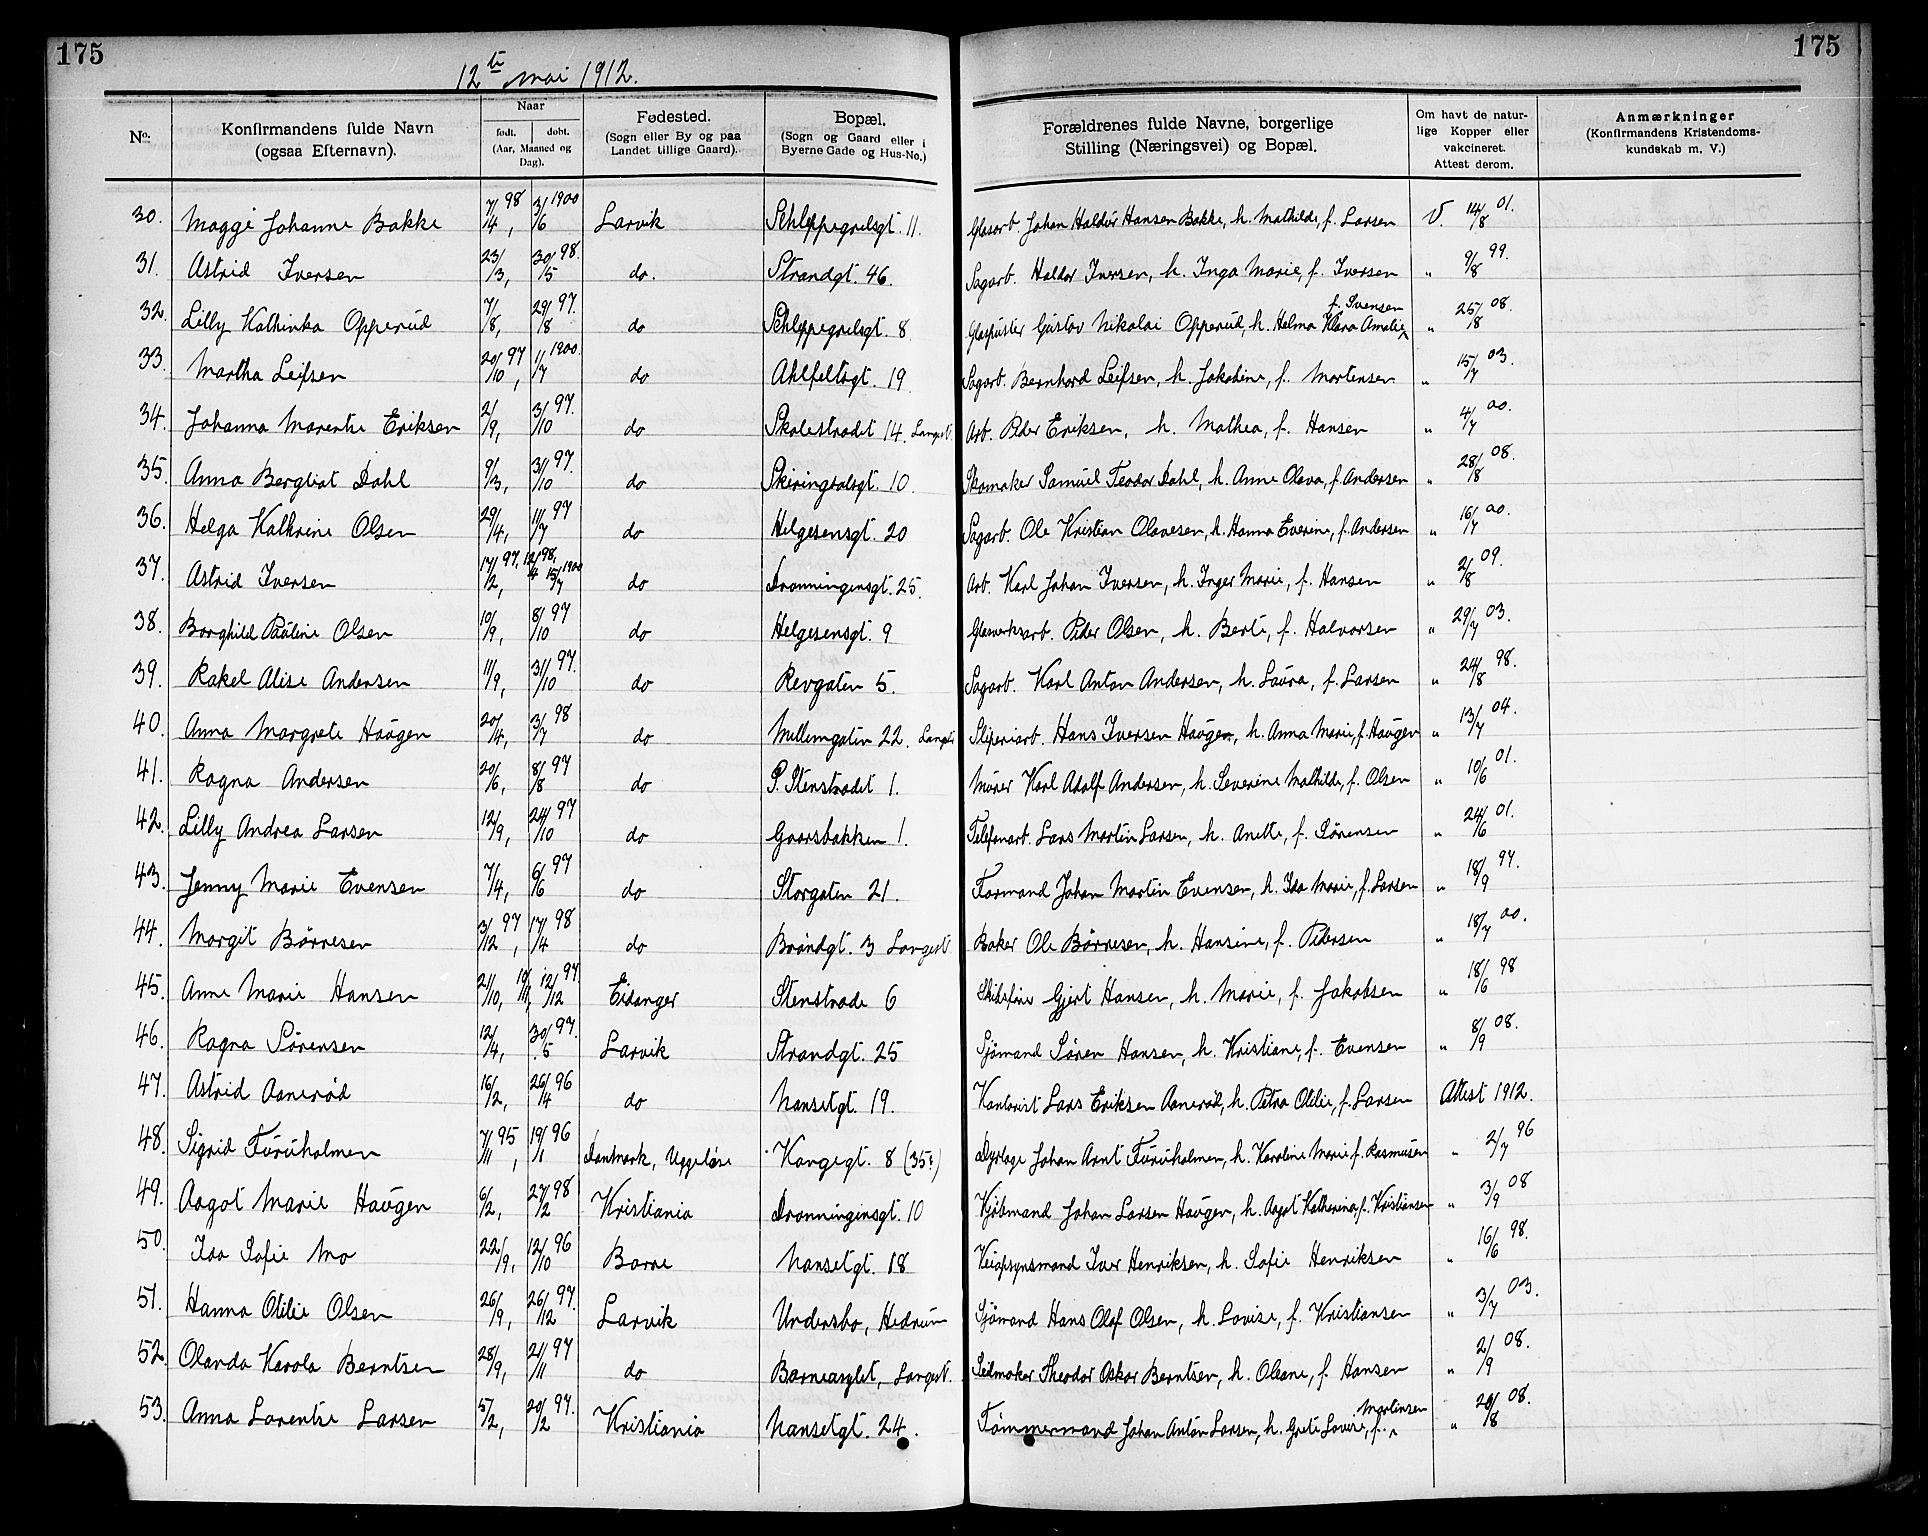 175
175
12te mai 1912.
No. Konfirmandens fulde Navn (ogsaa Efternavn). Naar født. døbt. (Aar, Maaned og Dag). Fødested. (Sogn eller By og paa Landet tillige Gaard). Bopæl. (Sogn og Gaard eller i Byerne Gade og Hus-No.) Forældrenes fulde Navne, borgerlige Stilling (Næringsvei) og Bopæl. Om havt de naturlige Kopper eller vakcineret. Attest derom. Anmærkninger (Konfirmandens Kristendomskundskab m. V.)
30. Maggi Johanne Bakke 7/4 98, 3/6 1900 Larvik Schleppegrelsgt. 11. Glasarb. Johan Haldor Hansen Bakke, h. Mathilde, f. Larsen V. 14/8 01.
31. Astrid Iversen 23/3, 30/5 98. do. Strandgt. 46. Sagarb. Haldor Iversen, h. Inga Marie, f. Iversen " 9/8 99.
32. Lilly Kathinka Opperud 7/8, 29/8 97. do Schleppegrelsgt. 8 Glaspuster Gustav Nikolai Opperud, h. Helma Klara Amalie, f. Svensen " 25/8 08.
33. Martha Leifsen 20/10 97, 1/7 1900. do Ahlfeltsgt. 19 Sagarb. Bernhard Leifsen, h. Jakobine, f. Martensen " 15/7 03.
34. Johanna Marentze Eriksen 2/9, 3/10 97. do Skolestradet 14. Langest. Arb. Peder Eriksen, h. Mathea, f. Hansen " 4/7 00.
35. Anna Bergliot Dahl 9/3, 31/10 97. do Skiringsalsgt. 10. Skomaker Samuel Teodor Dahl, h. Anne Olava, f. Andersen " 28/8 08.
36. Helga Kathrine Olsen 29/4, 11/7 97 do Helgesensgt. 20 Sagarb. Ole Kristian Olavesen, h. Hanna Everine, f. Andersen " 16/7 00.
37. Astrid Iversen 17/2 97, 12/4 98. 15/7 1900 do Dronningensgt. 25. Arb. Karl Johan Iversen, h. Inger Marie, f. Hansen " 2/8 09.
38. Borghild Pauline Olsen 10/9, 8/10 97 do Helgesensgt. 9 Glasverksarb. Peder Olsen, h. Berte, f. Halvorsen " 29/7 03.
39. Rakel Alise Andersen 11/9, 31/10 97. do Revgaten 5. Sagarb. Karl Anton Andersen, h. Laura, f. Larsen " 24/8 98.
40. Anna Margrete Haugen 20/4, 3/7 98 do Mellemgaten 22. Langest Sliperiarb. Hans Iversen Haugen, h. Anna Marie, f. Haugen " 13/7 04.
41. Ragna Andersen 20/6, 8/8 97 do P. Stenstradet 1. Murer Karl Adolf Andersen, h. Severine Mathilde, f. Olsen " 10/6 01.
42. Lilly Andrea Larsen 12/9, 24/10 97 do Gaarsbakken 1. Telefonarb. Lars Martin Larsen, h. Anette, f. Sørensen " 24/6 01.
43. Jenny Marie Evensen 7/4, 6/6 97 do Storgaten 21. Formand Johan Martin Evensen, h. Ida Marie, f. Larsen " 18/9 97.
44. Margit Børresen 3/12 97, 17/4 98 do Brøndgt. 3 Langest. Baker Ole Børresen, h. Hansine, f. Pedersen " 18/7 00.
45. Anne Marie Hansen 21/10, 10/11, 12/12 97. Eidanger Stenstrade 6 Skibsfører Gjert Hansen, h. Marie, f. Jakobsen " 18/6 98
46. Ragna Sørensen 12/4, 30/5 97. Larvik Strandgt. 25 Sjømand Søren Hansen, h. Kristiane, f. Evensen " 8/9 08.
47. Astrid Aanerød 16/2, 26/4 96 do Nansetgt. 19. Kantorist Lars Eriksen Aanerød, h. Petra Otilie, f. Larsen Attest 1912.
48. Sigrid Furuholmen 7/11 95, 19/1 96 Danmark, Uggeløse Kongegt. 8 Dyrlæge Johan Arnt Furuholmen, h. Karoline Marie f. Rasmusen " 2/7 96
49. Aagot Marie Haugen 6/2, 27/2 98 Kristiania Dronningensgt. 10 Kjøbmand Johan Larsen Haugen, h. Aagot Katherina, f. Kristiansen " 3/9 08
50. Ida Sofie Mo 22/9, 12/10 96 Borre Nansetgt. 18 Veiopsynsmand Iver Henriksen, h. Sofie Henriksen " 16/6 98.
51. Hanna Otilie Olsen 26/9, 26/12 97. Larvik Undersbo, Hedrum Sjømand Hans Olaf Olsen, h. Lovise, f. Kristiansen " 3/7 03.
52. Olanda Karola Berntsen 28/9, 21/11 97 do Barneasylet, Langest. Seilmaker Theodor Oskar Berntsen, h. Oleane, f. Hansen " 2/9 08.
53. Anna Larentze Larsen 5/2, 20/2 97. Kristiania Nansetgt. 24. Tømmermand Johan Anton Larsen, h. Grete Lovise, f. Martinsen " 20/8 08.